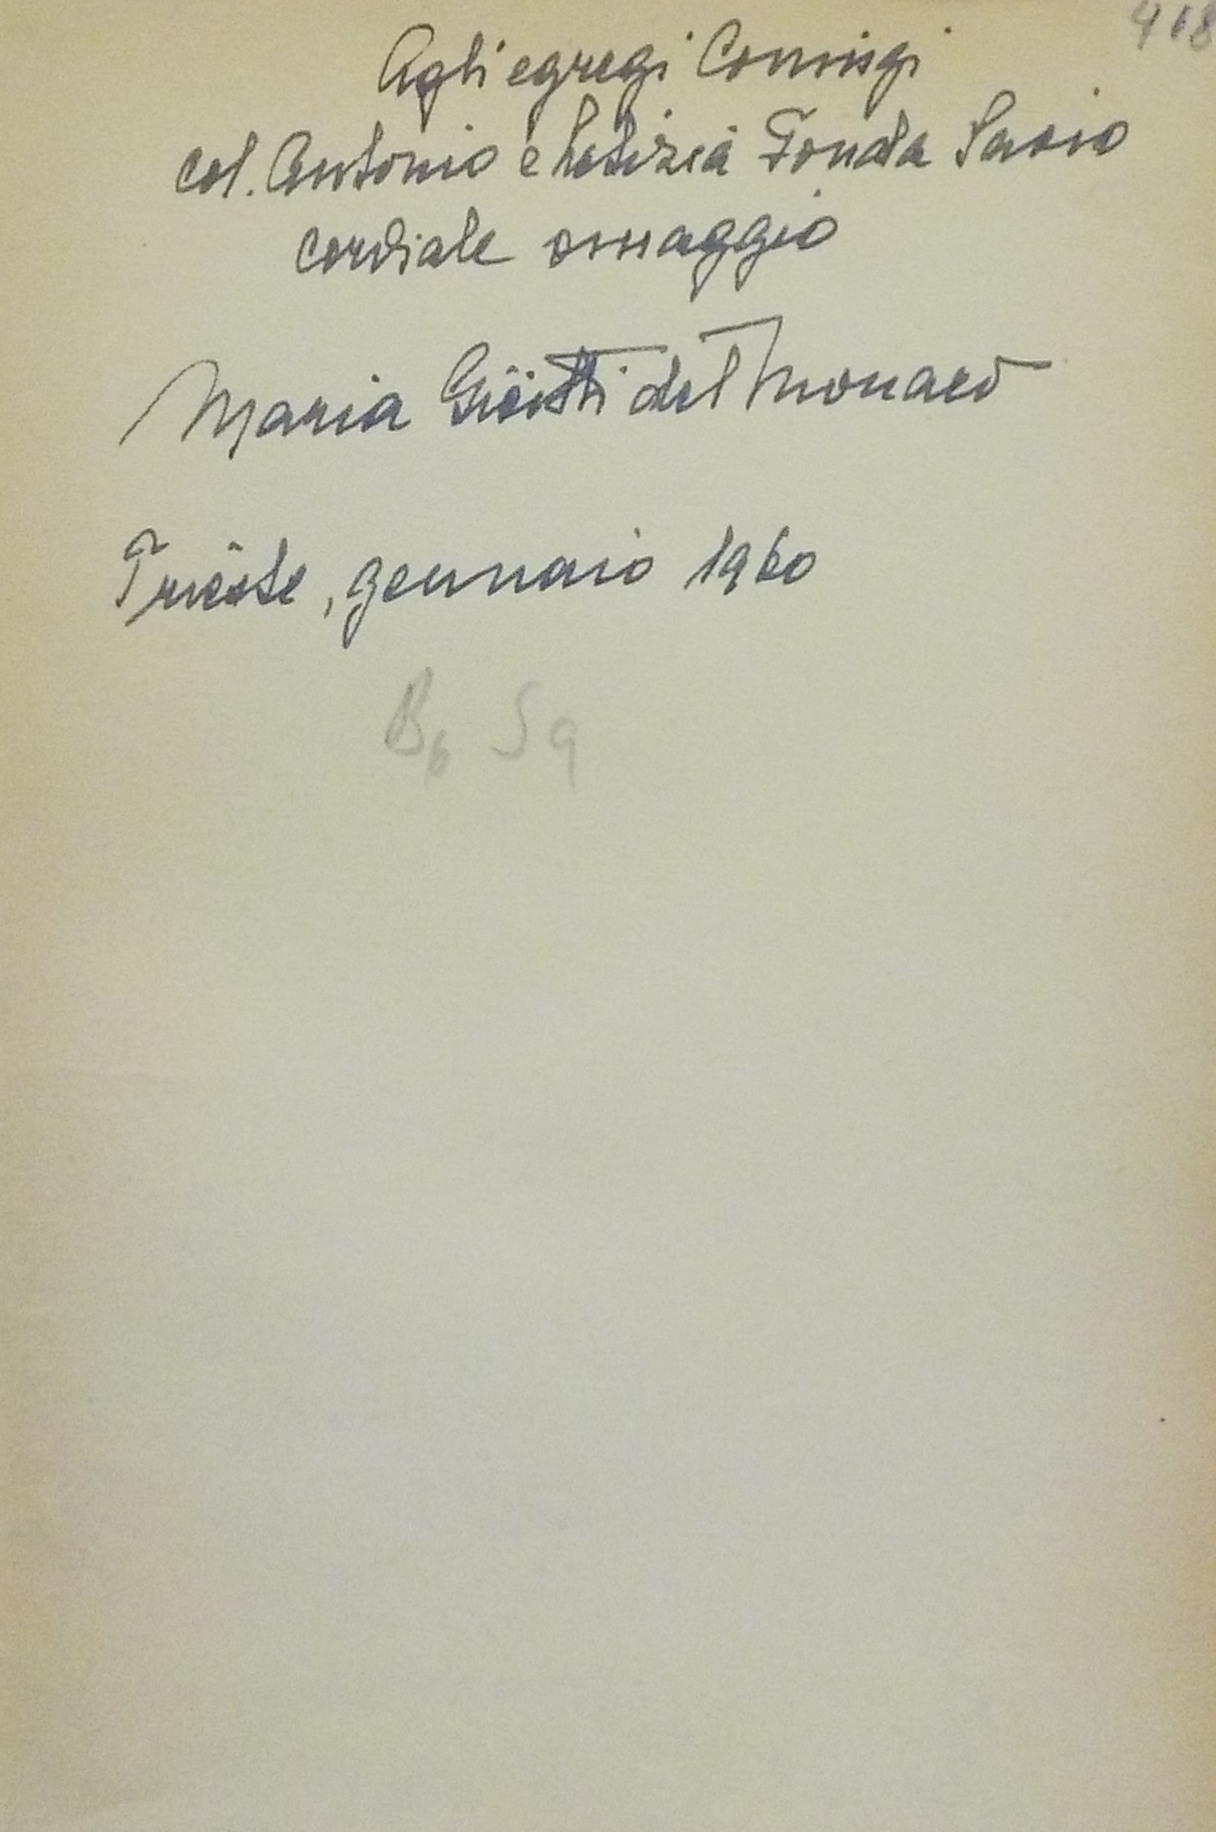 418
Agli egregi Coniugi
col. Antonio e Letizia Fonda Savio
cordiale omaggio
Maria Giusti del Monaco
Trieste, gennaio 1960
B6 59